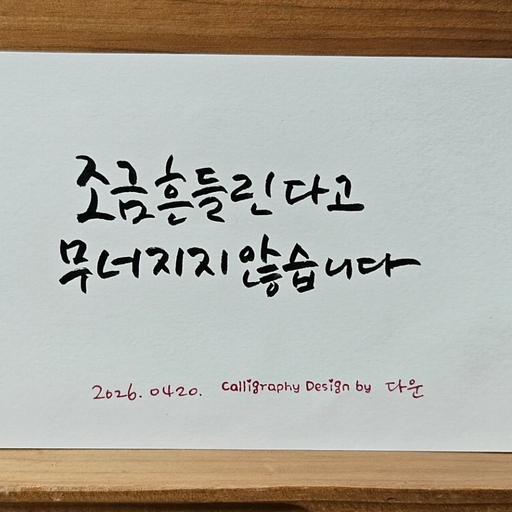 조금 흔들린다고
무너지지 않습니다
2026. 0420. Calligraphy Design by 다운